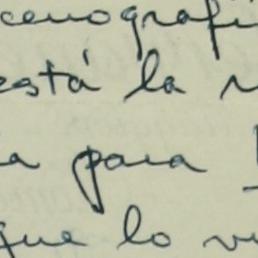 cenografi
está la
a para
que lo